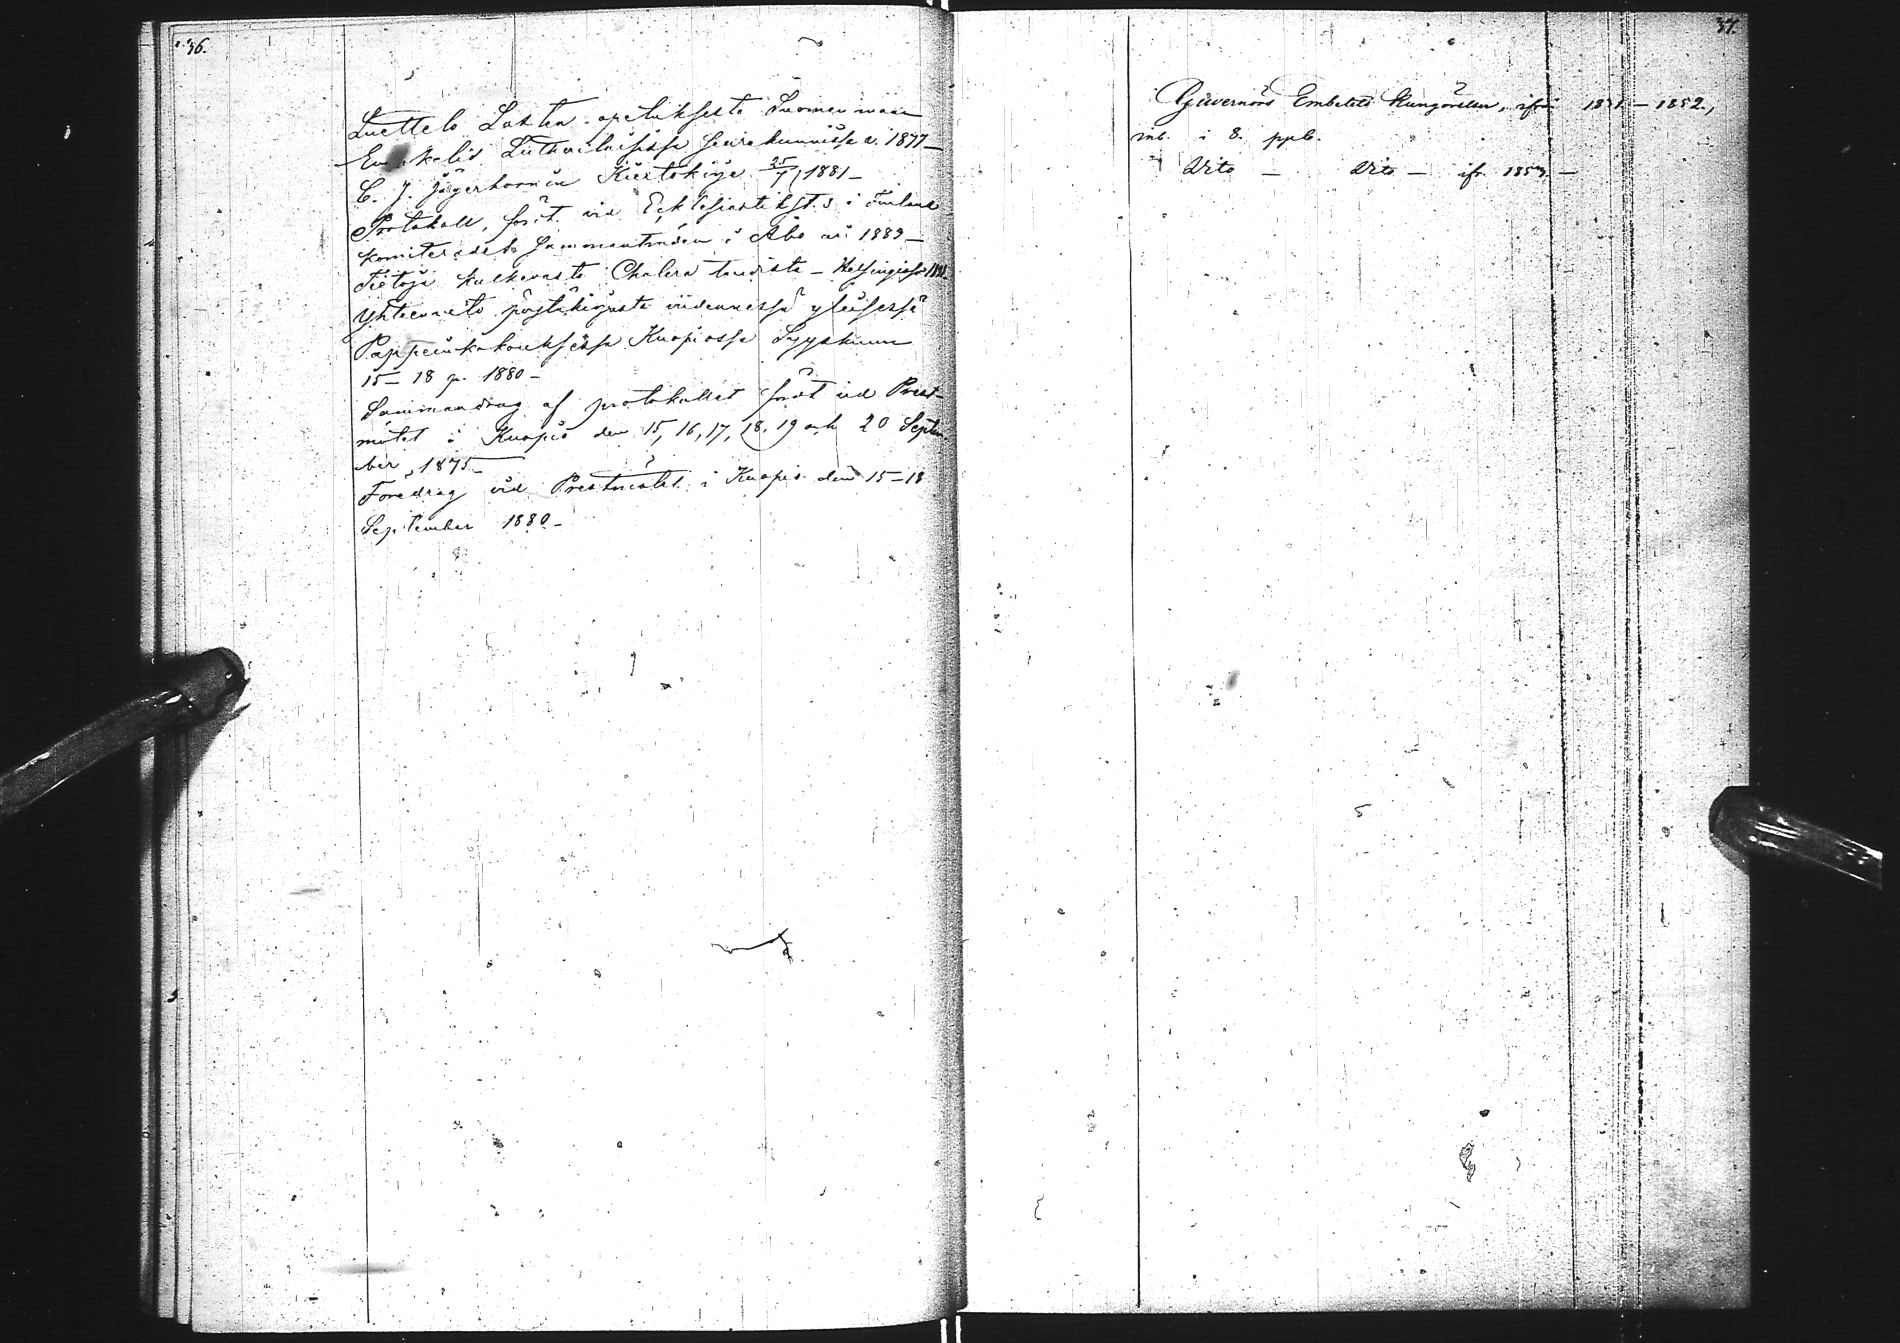 36.
Luettelo Lasten opetuksesta Suomenmaan
Evankelis Lutherilaisissa seurakunnissa v. 1877 —
C. J. Jägerhornin Kiertokirje 25/7 1881 —
Protokoll, fördt vid Ecklesiastik i Finland
komiterades sammanträden i Åbo år 1883 —
Tietoja kulkevasta Cholera taudista — Helsingissä
Yhteenveto pöytäkirjasta viidennessä yleisessä
Pappeinkokouksessa Kuopiossa Syyskuun
15 — 18 p. 1880 —
Sammandrag af protokollet fördt vid Prest-
mötet i Kuopio den 15, 16, 17, 18, 19 och 20 Septem-
ber 1875 —
Föredrag vid Prestmötet i Kuopio den 15 — 18
September 1880 —
37.
Guvernörs Embetets Kungörelser, ifrån 1831 — 1852,
inb. i 8. ppb.
Dito — Dito — ifr. 1853 —